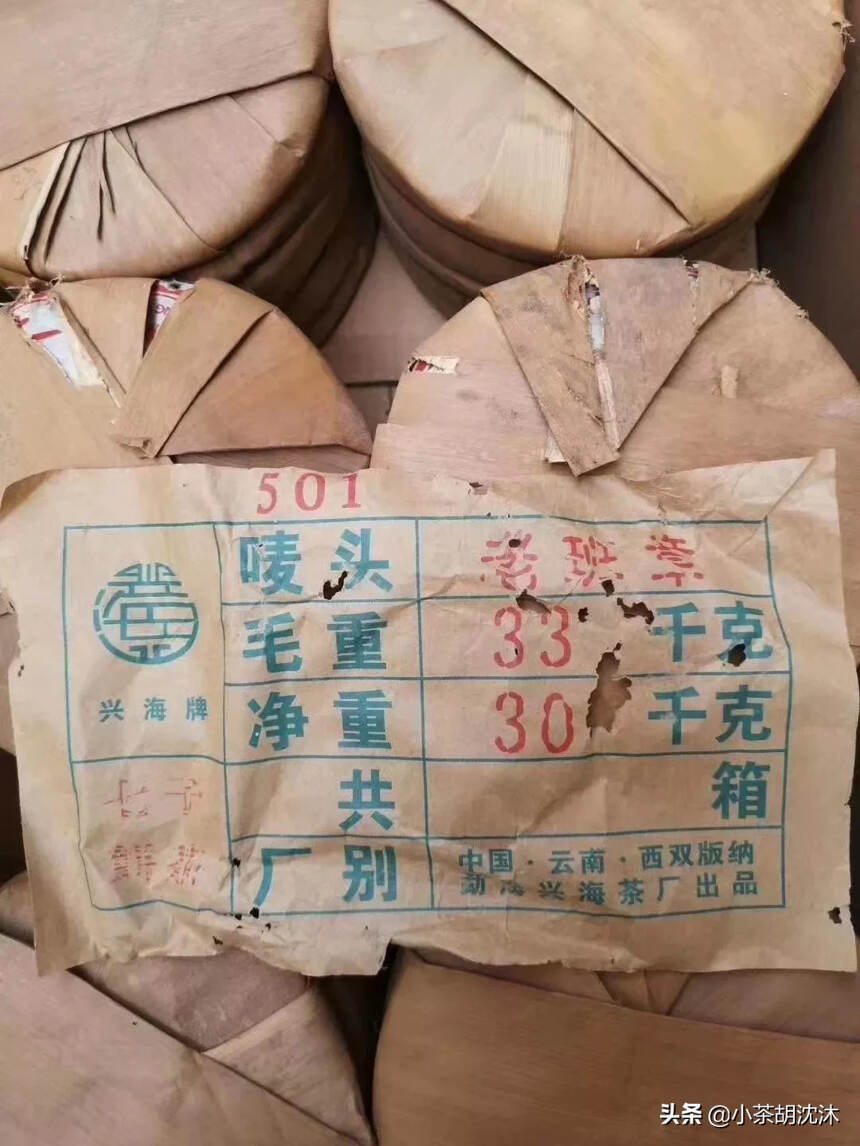 501
唛头 老班章
毛重 33 千克
净重 30 千克
兴海牌
共 箱
七子
饼茶
厂别 中国·云南·西双版纳
勐海兴海茶厂出品
头条 @小茶胡沈沐